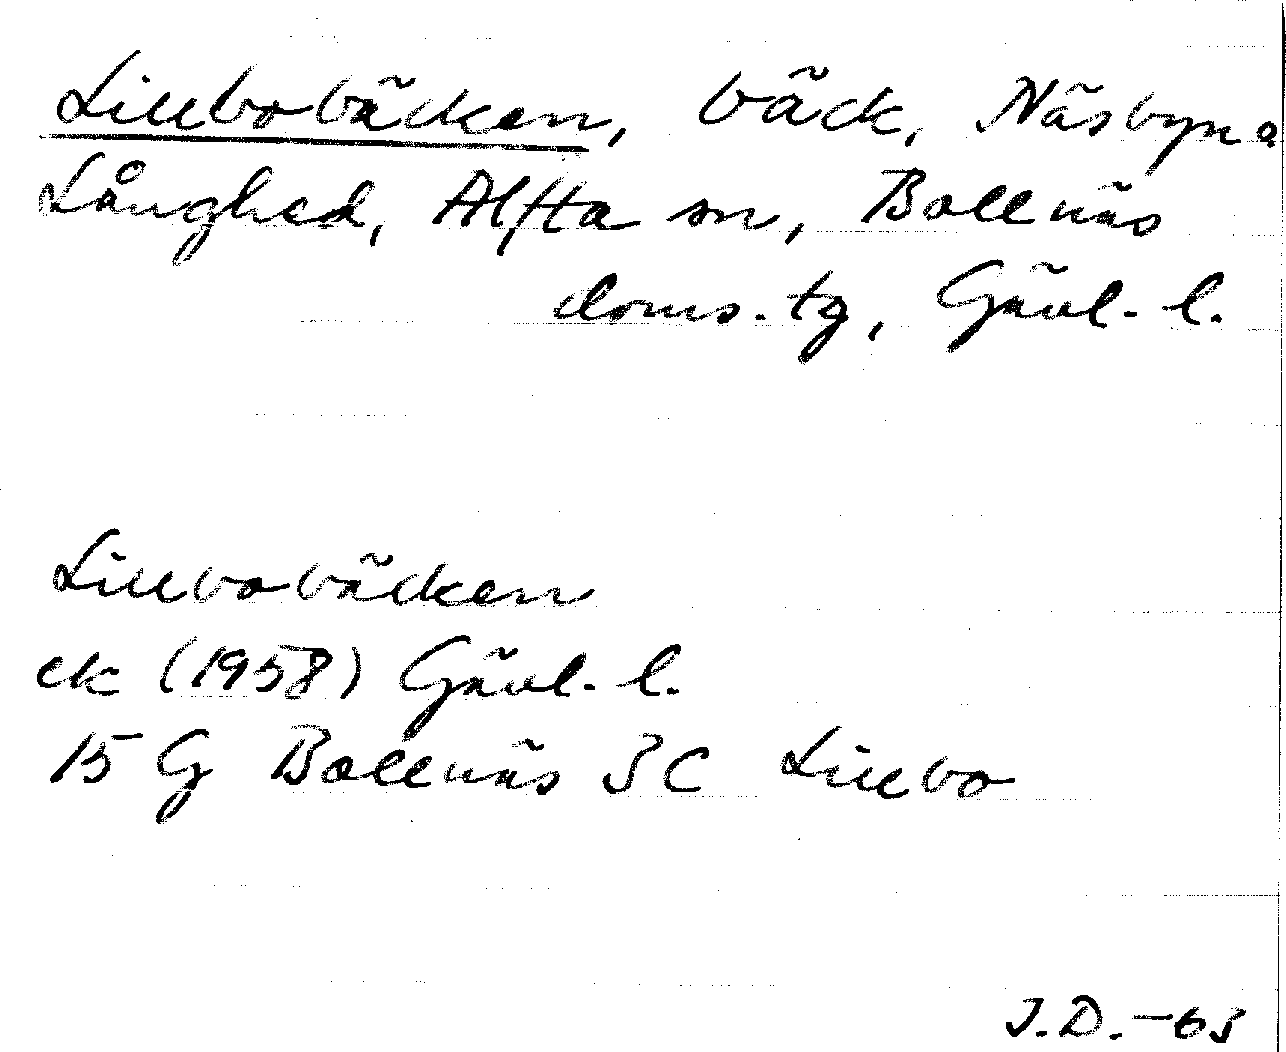 Lillbobäcken, bäck, Näsbyn o
Långhed, Alfta sn, Bollnäs
doms. tg, Gävl. l.
Lillbobäcken
ek (1958) Gävl. l.
15 G Bollnäs 3 C Lillbo
J.D. -63